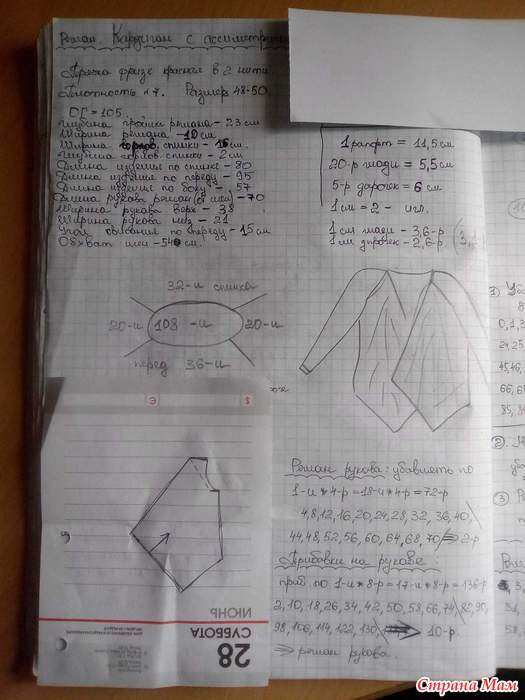 Реглан Кардиган с ассиметрич
Пряжа фризе красная в 2 нити
Плотность н 7. Размер 48-50.
ОГ = 105.
Глубина проймы реглана - 23 см
Ширина реглана - 10 см
Ширина горлов. спинки - 16 см
Глубина горлов. спинки - 2 см
Длина изделия по спинке - 80
Длина изделия по переду - 95
Длина изделия по боку - 57
Длина рукава реглан (от шеи) - 70
Ширина рукава верх - 38
Ширина рукава низ - 21
по переду - 15 см
Обхват шеи - 54 см.
1 рапорт = 11,5 см
20-р глади = 5,5 см
5-р дорожек = 6 см
1 см = 2 - игл.
1 см глади - 3,6-р
1 см дорожек - 2,6-р
32-и спинка
20-и
108 -и
20-и
перед 36-и
Реглан рукава: убавлять по
1-и * 4-р = 18-и * 4-р = 72-р
4,8,12,16,20,24,28,32,36,40,
44,48,52,56,60,64,68,70 ⇒ 2-р
Прибавки на рукаве:
приб. по 1-и * 8-р = 17-и * 8-р = 136-р
2,10,18,26,34,42,50,58,66,74,82,90,
98,106,114,122,130 ⇒ 10-р.
⇒ реглан рукава.
1)
0,1,3
24,25,
45,46,
66,6
85,8
2).
3)
28
СУББОТА
ИЮНЬ
Страна Мам